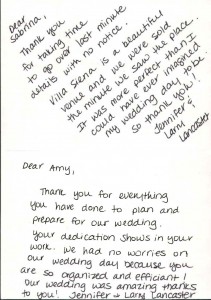 Dear
Sabrina,
Thank you
for taking time
to go over last minute
details with no notice.
Villa Siena is a beautiful
venue and we were sold
the minute we saw the place.
It was more perfect than I
could have ever imagined
my wedding day to be!
So thank you!
Jennifer &
Larry Lancaster
Dear Amy,
Thank you for everything
you have done to plan and
prepare for our wedding.
Your dedication shows in your
work. We had no worries on
our wedding day because you
are so organized and efficient!
Our wedding was amazing thanks
to you! Jennifer & Larry Lancaster